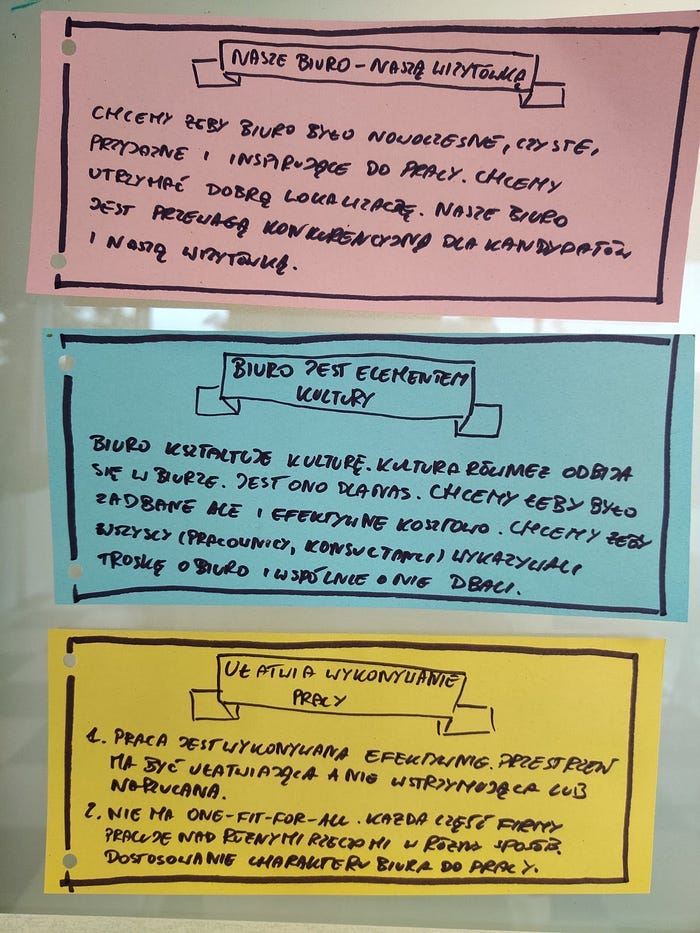 NASZE BIURO – NASZĄ WIZYTÓWKĄ
CHCEMY ŻEBY BIURO BYŁO NOWOCZESNE, CZYSTE,
PRZYJAZNE I INSPIRUJĄCE DO PRACY. CHCEMY
UTRZYMAĆ DOBRĄ LOKALIZACJĘ. NASZE BIURO
JEST PRZEWAGĄ KONKURENCYJNĄ DLA KANDYDATÓW
I NASZĄ WIZYTÓWKĄ.
BIURO JEST ELEMENTEM
KULTURY
BIURO KSZTAŁTUJE KULTURĘ. KULTURA RÓWNIEŻ ODBIJA
SIĘ W BIURZE. JEST ONO DLA NAS. CHCEMY ŻEBY BYŁO
ZADBANE ALE I EFEKTYWNE KOSZTOWO. CHCEMY ŻEBY
WSZYSCY (PRACOWNICY, KONSULTANCI) WYKAZYWALI
TROSKĘ O BIURO I WSPÓLNIE O NIE DBALI.
UŁATWIA WYKONYWANIE
PRACY
1. PRACA JEST WYKONYWANA EFEKTYWNIE. PRZESTRZEŃ
MA BYĆ UŁATWIAJĄCA A NIE WSTRZYMUJĄCA LUB
NARZUCANA.
2. NIE MA ONE-FIT-FOR-ALL. KAŻDA CZĘŚĆ FIRMY
PRACUJE NAD RÓŻNYMI RZECZAMI W RÓŻNY SPOSÓB.
DOSTOSOWANIE CHARAKTERU BIURA DO PRACY.